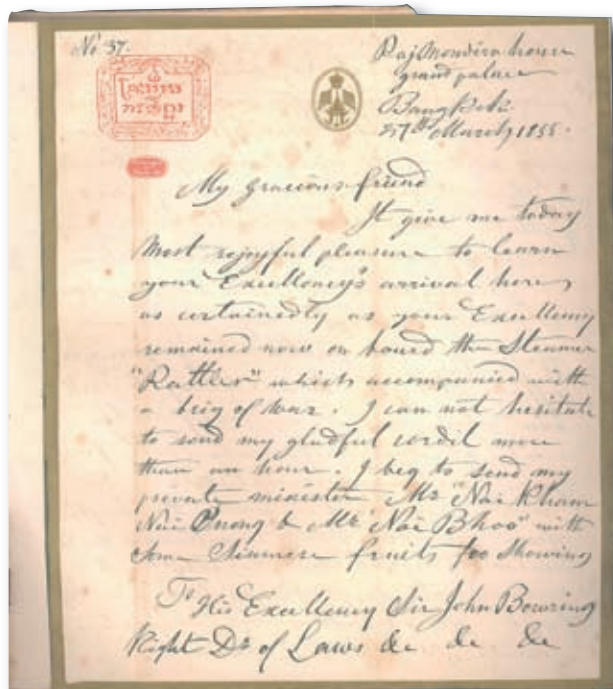 No 37.
Raj Mondira house
grand palace
Bangkok
27th March 1855.
My gracious friend
It give me today
Most rejoyful pleasure to learn
your Excellency's arrival here,
as certainedly as your Excellency
remained now on board the Steamer
"Rattler" which accompanied with
a brig of war. I can not hesitate
to send my gladful cordil more
than an hour. I beg to send my
private minister Mr "Nai Kham
Nai Bhoo" with
Some Siamese fruits for Showing
To His Excellency Sir John Bowring
Knight Dr of Laws &c &c &c